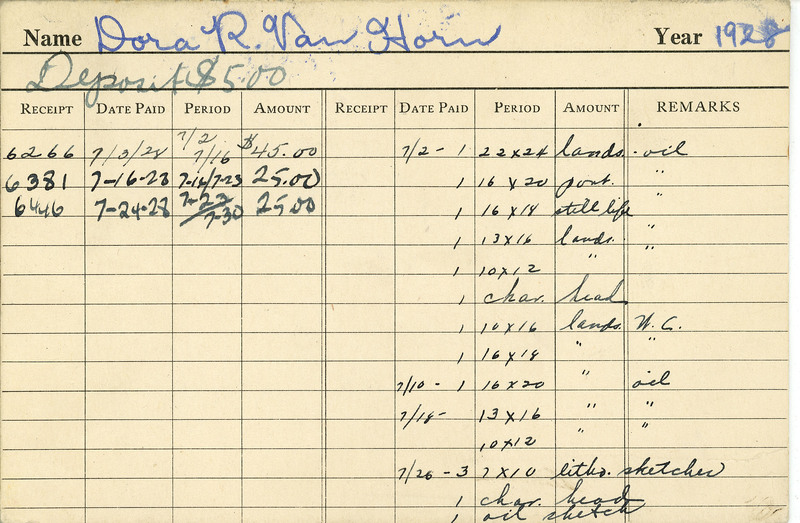 Name Dora R. Van Horn Year 1928
Deposit $5.00
RECEIPT DATE PAID PERIOD AMOUNT RECEIPT DATE PAID PERIOD AMOUNT REMARKS
6266 7/3/28 7/2 7/16 $45.00 7/2- 1 22 x 24 lands. - oil
6381 7-16-28 7-16/7-23 25.00 1 16 x 20 port. "
6446 7-24-28 7-23/7-30 25.00 1 16 x 18 still life "
1 13 x 16 lands. "
1 10 x 12 "
1 char. head
1 10 x 16 lands. W.C.
1 16 x 18 " "
7/10- 1 16 x 20 " oil
7/18- 13 x 16 " "
10 x 12 " "
7/26 - 3 7 x 10 litho. sketches
1 char. head
1 oil sketch